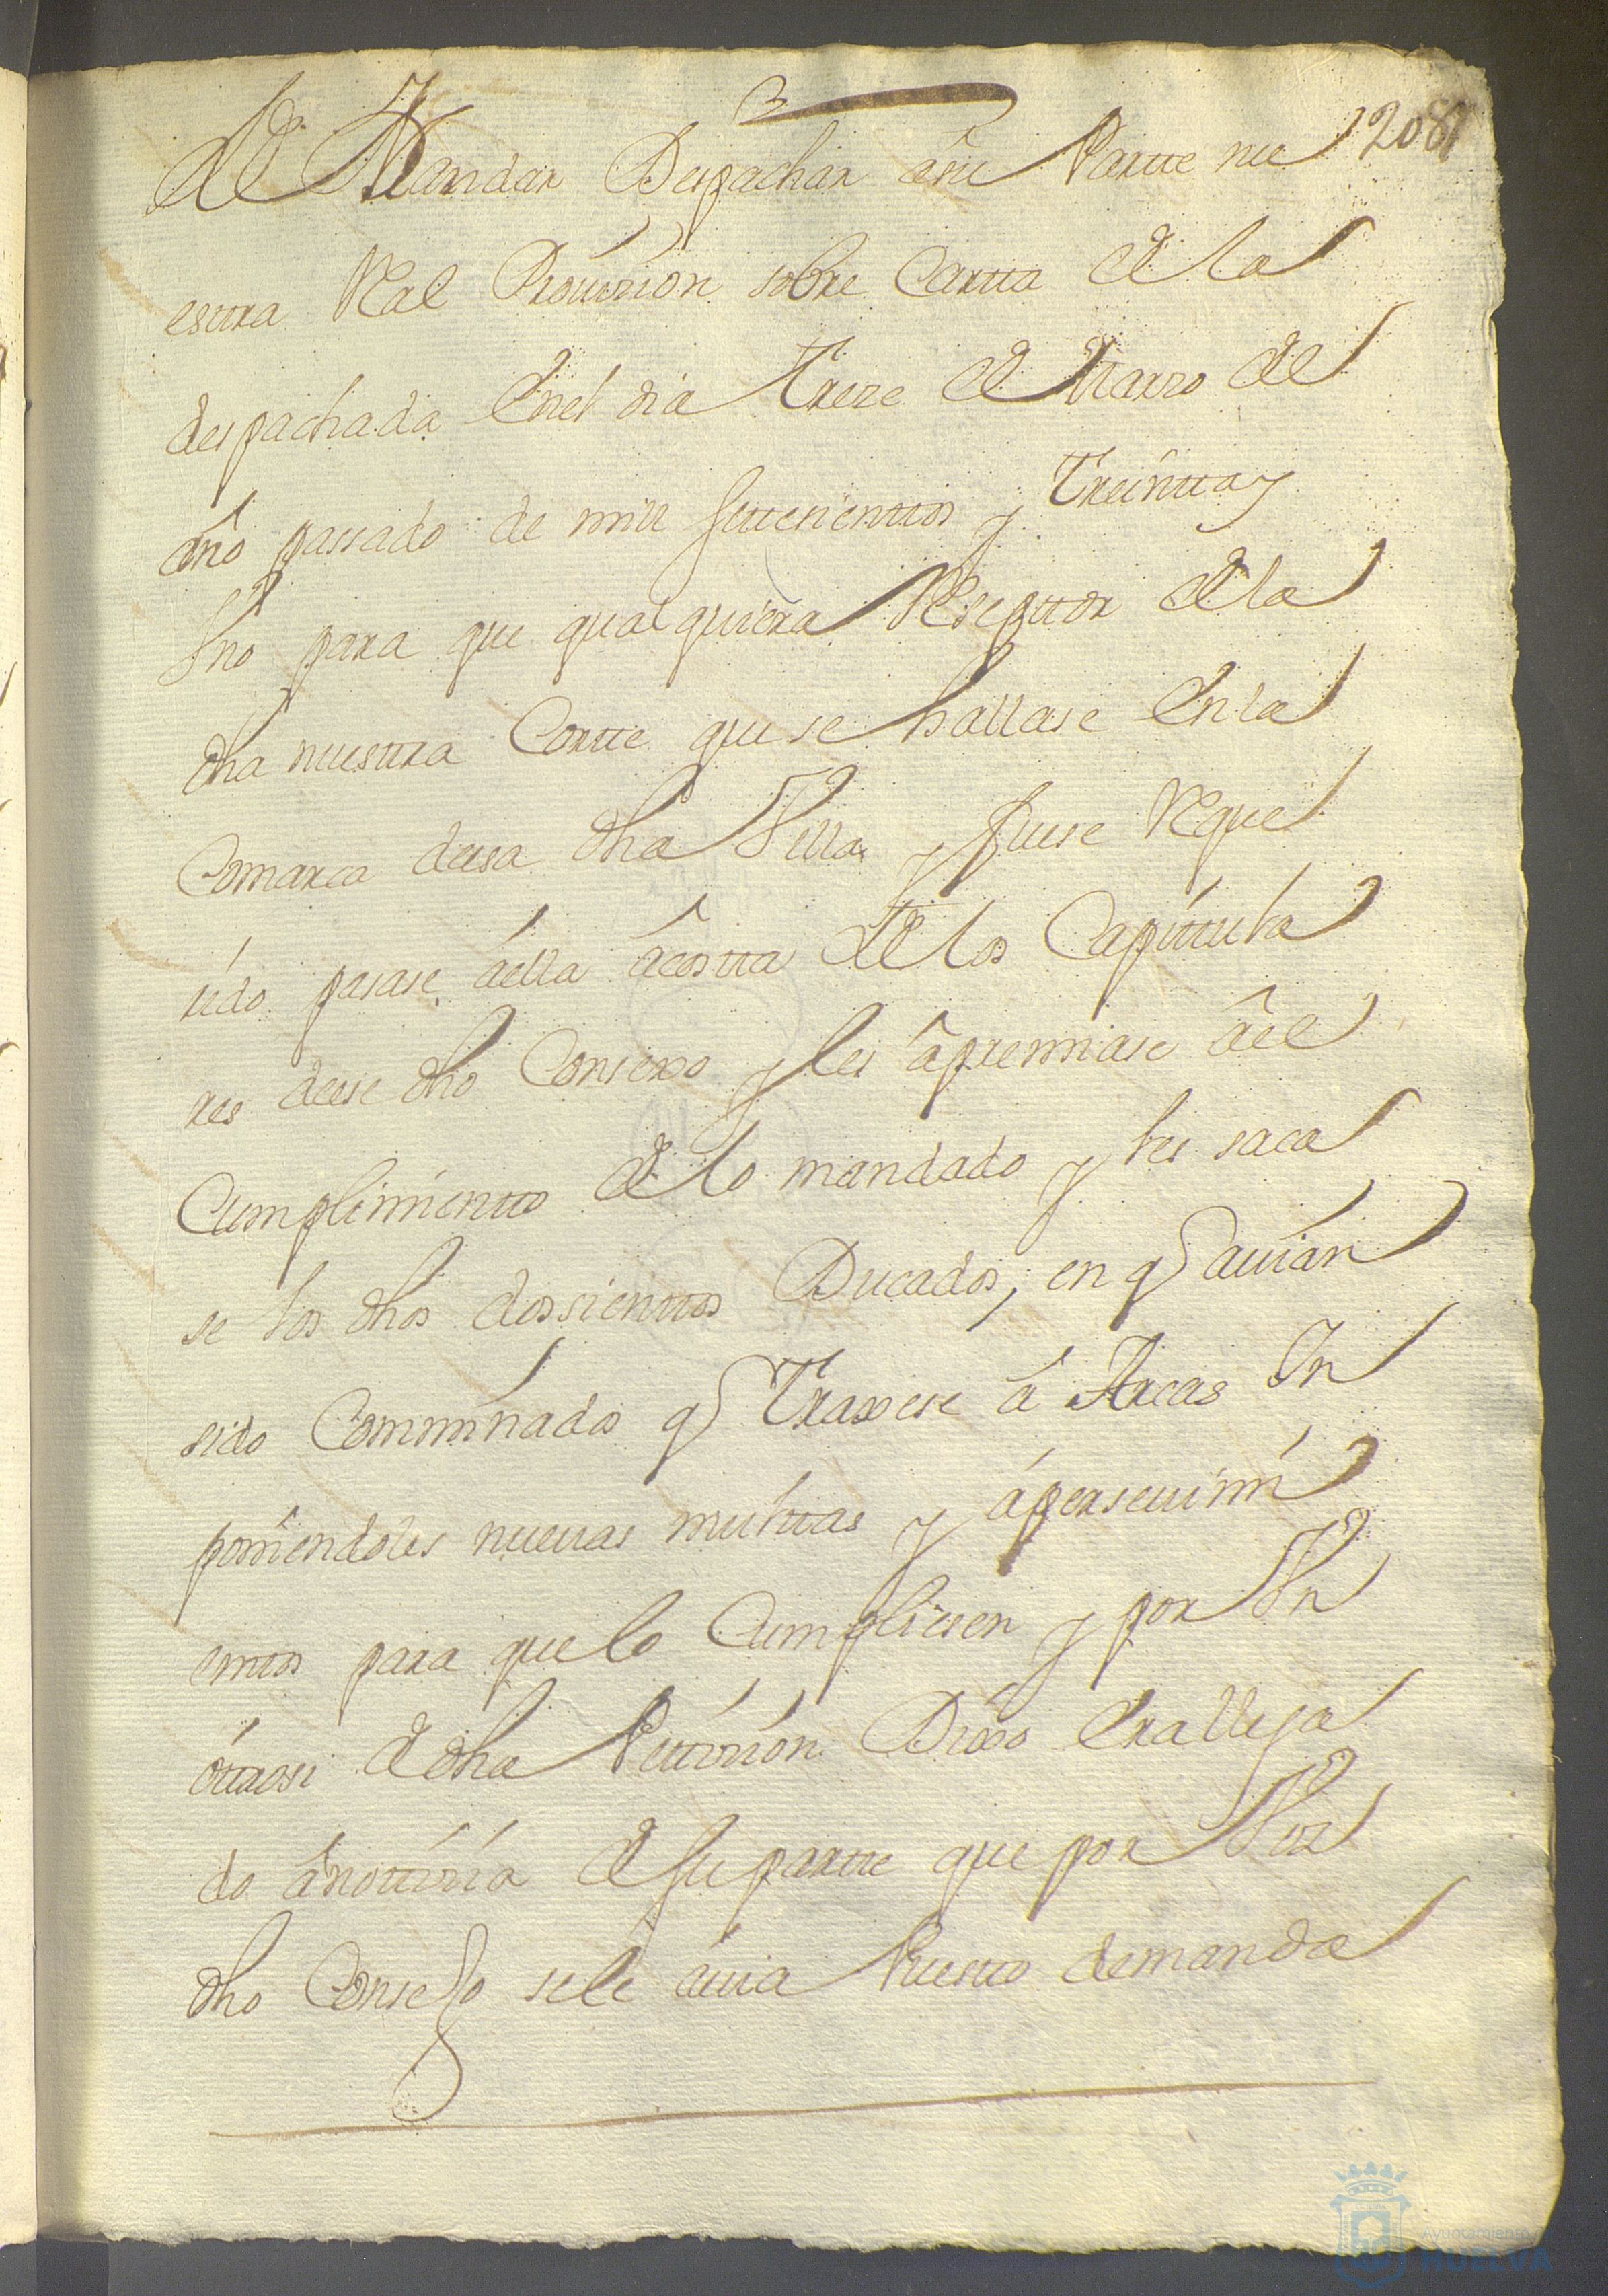 208
de Mandar Despachar âsu Partte nu
estra Real Provision sobre Cartta de la
despachada Enel dia Treze de Marzo del
año passado de mill settezienttos y Treintta y
Uno para que qualquiera Rezepttor de la
dha nuestra Cortte que se hallase En la
Comarca desa dha Villa y fuese Reque
rido pasase âella âcostta de los Capittula
res dese dho Consexo y les âpremiase âel
Cumplimientto de lo mandado y les saca
se los dhos dossienttos Ducados, en q avian
sido Comminados q Traxese â Arcas Yn
poniendoles nuevas multtas y âpersevimi
entos para que lo Cumpliesen y por Un
ôttrosi de dha Pettizion Dixo Era llega
do ânottizia de su partte que por Ese
dho Consejo se le avia Puestto demanda
Ayuntamiento
HUELVA